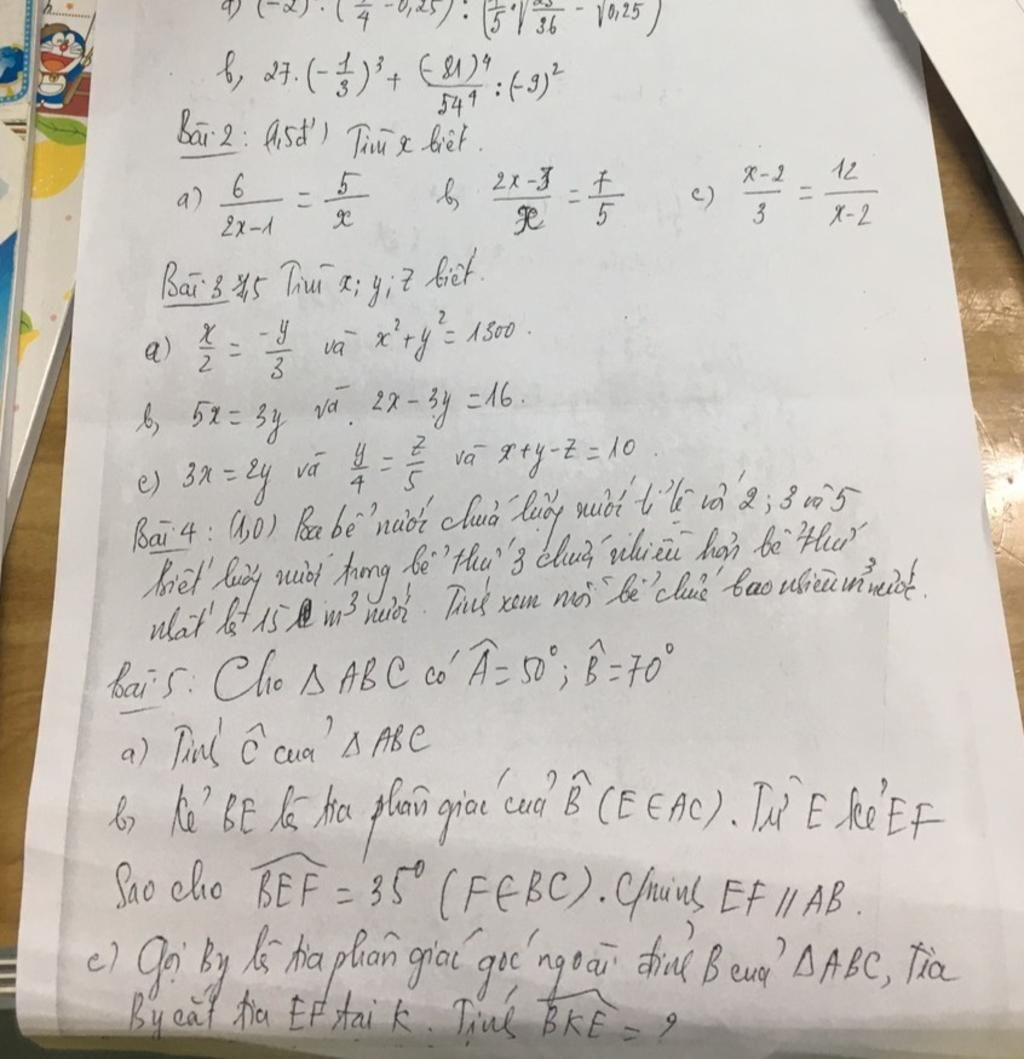 a) (-2) · ( /4 - 0,25) : ( /5 · √ /36 - √0,25)
b, 27. (-1/3)³ + (-81)⁴/54⁴ : (-9)²
Bài 2: (1,5đ) Tìm x biết.
a) 6/(2x-1) = 5/x b, (2x-3)/x = 7/5 c) (x-2)/3 = 12/(x-2)
Bài 3 1,5 Tìm x; y; z biết.
a) x/2 = -y/3 và x² + y² = 1300.
b, 5x = 3y và 2x - 3y = 16.
c) 3x = 2y và y/4 = z/5 và x + y - z = 10.
Bài 4: (1,0) Ba bể nước chứa lượng nước tỉ lệ với 2; 3 và 5
biết lượng nước trong bể thứ 3 chứa nhiều hơn bể thứ
nhất là 15 m³ nước. Tính xem mỗi bể chứa bao nhiêu m³ nước.
Bài 5: Cho Δ ABC có Â = 50°; B̂ = 70°
a) Tính Ĉ của Δ ABC
b, Kẻ BE là tia phân giác của B̂ (E ∈ AC). Từ E kẻ EF
sao cho BEF = 35° (F ∈ BC). C/minh EF // AB.
c) Gọi By là tia phân giác góc ngoài đỉnh B của ΔABC, Tia
By cắt tia EF tại K. Tính BKE = ?